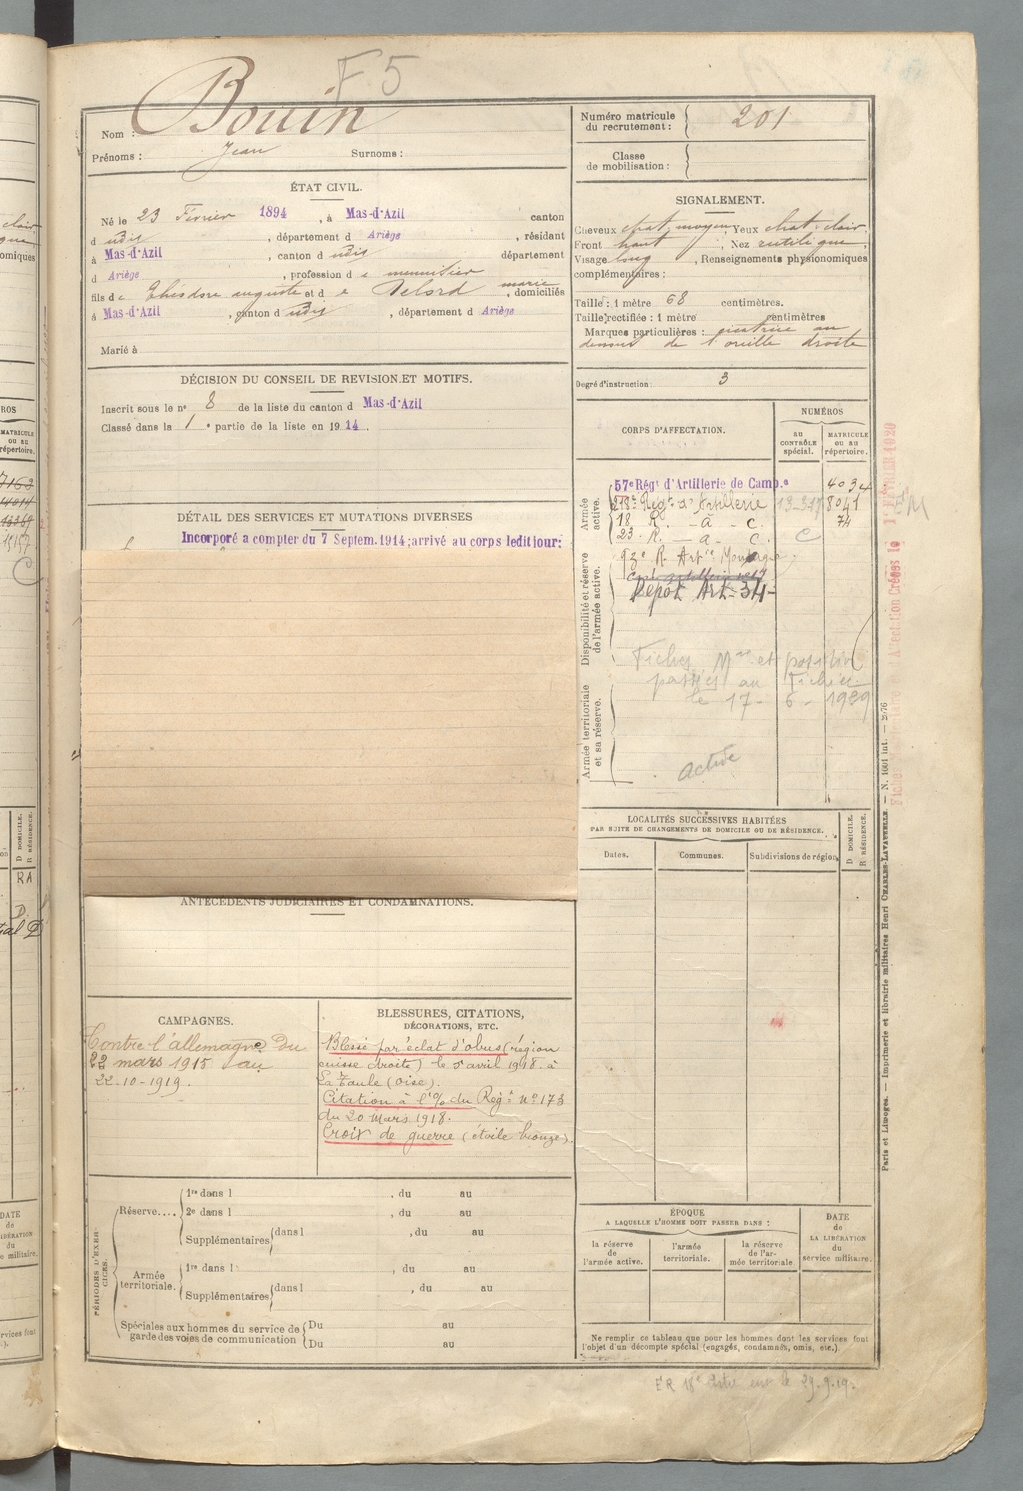 F 5
Nom : Bouin
Prénoms : Jean Surnoms :
Numéro matricule du recrutement : 201
Classe de mobilisation :
ÉTAT CIVIL.
Né le 23 Février 1894, à Mas-d'Azil canton
d udis, département d Ariège, résidant
à Mas-d'Azil, canton d udis département
d Ariège, profession d e menuisier
fils de Théodore auguste et d e Delord marie, domiciliés
à Mas-d'Azil, canton d udis, département d Ariège
Marié à
SIGNALEMENT.
Cheveux chat, moyen, Yeux chat. clair.
Front haut, Nez rectiligne,
Visage long, Renseignements physionomiques
complémentaires :
Taille : 1 mètre 68 centimètres.
Taille rectifiée : 1 mètre centimètres
Marques particulières : cicatrice au
dessous de l'oreille droite
Degré d'instruction : 3
DÉCISION DU CONSEIL DE REVISION ET MOTIFS.
Inscrit sous le n° 8 de la liste du canton d Mas-d'Azil
Classé dans la 1e partie de la liste en 1914.
DÉTAIL DES SERVICES ET MUTATIONS DIVERSES
Incorporé a compter du 7 Septem.1914; arrivé au corps ledit jour;
CORPS D'AFFECTATION.
NUMÉROS
AU CONTRÔLE spécial.
MATRICULE ou au répertoire.
Armée active.
57e Régt d'Artillerie de Camp.e 4034
218e Régt d'Artillerie 13-317 8041
18 R. - a - c. 74
23. R. - a - C. C
Disponibilité et réserve de l'armée active.
93e R. Artie Montagne
Dépôt Art-34-
Fiches Mre et position
passées au Fichier
le 17-6-1929
Armée territoriale et sa réserve.
active
LOCALITÉS SUCCESSIVES HABITÉES
PAR SUITE DE CHANGEMENTS DE DOMICILE OU DE RÉSIDENCE.
Dates.
Communes.
Subdivisions de région.
D DOMICILE.
R RÉSIDENCE.
ANTÉCÉDENTS JUDICIAIRES ET CONDAMNATIONS.
CAMPAGNES.
Contre l'allemagne du
22 mars 1915 au
22-10-1919.
BLESSURES, CITATIONS,
DÉCORATIONS, ETC.
Blessé par éclat d'obus (région
cuisse droite) le 5 avril 1918. à
La Taule (oise).
Citation à l'o/o du Régt n° 173
du 20 Mars 1918.
Croix de guerre (étoile bronze).
PÉRIODES D'EXERCICES.
Réserve....
1re dans l , du au
2e dans l , du au
Supplémentaires dans l , du au
Armée territoriale.
1re dans l , du au
Supplémentaires dans l , du au
Spéciales aux hommes du service de garde des voies de communication
Du au
Du au
ÉPOQUE
A LAQUELLE L'HOMME DOIT PASSER DANS :
la réserve de l'armée active.
l'armée territoriale.
la réserve de l'armée territoriale.
DATE de LA LIBÉRATION du service militaire.
Ne remplir ce tableau que pour les hommes dont les services font
l'objet d'un décompte spécial (engagés, condamnés, omis, etc.).
Paris et Limoges. — Imprimerie et librairie militaires Henri CHARLES-LAVAUZELLE. — N. 1601 int. — 2976